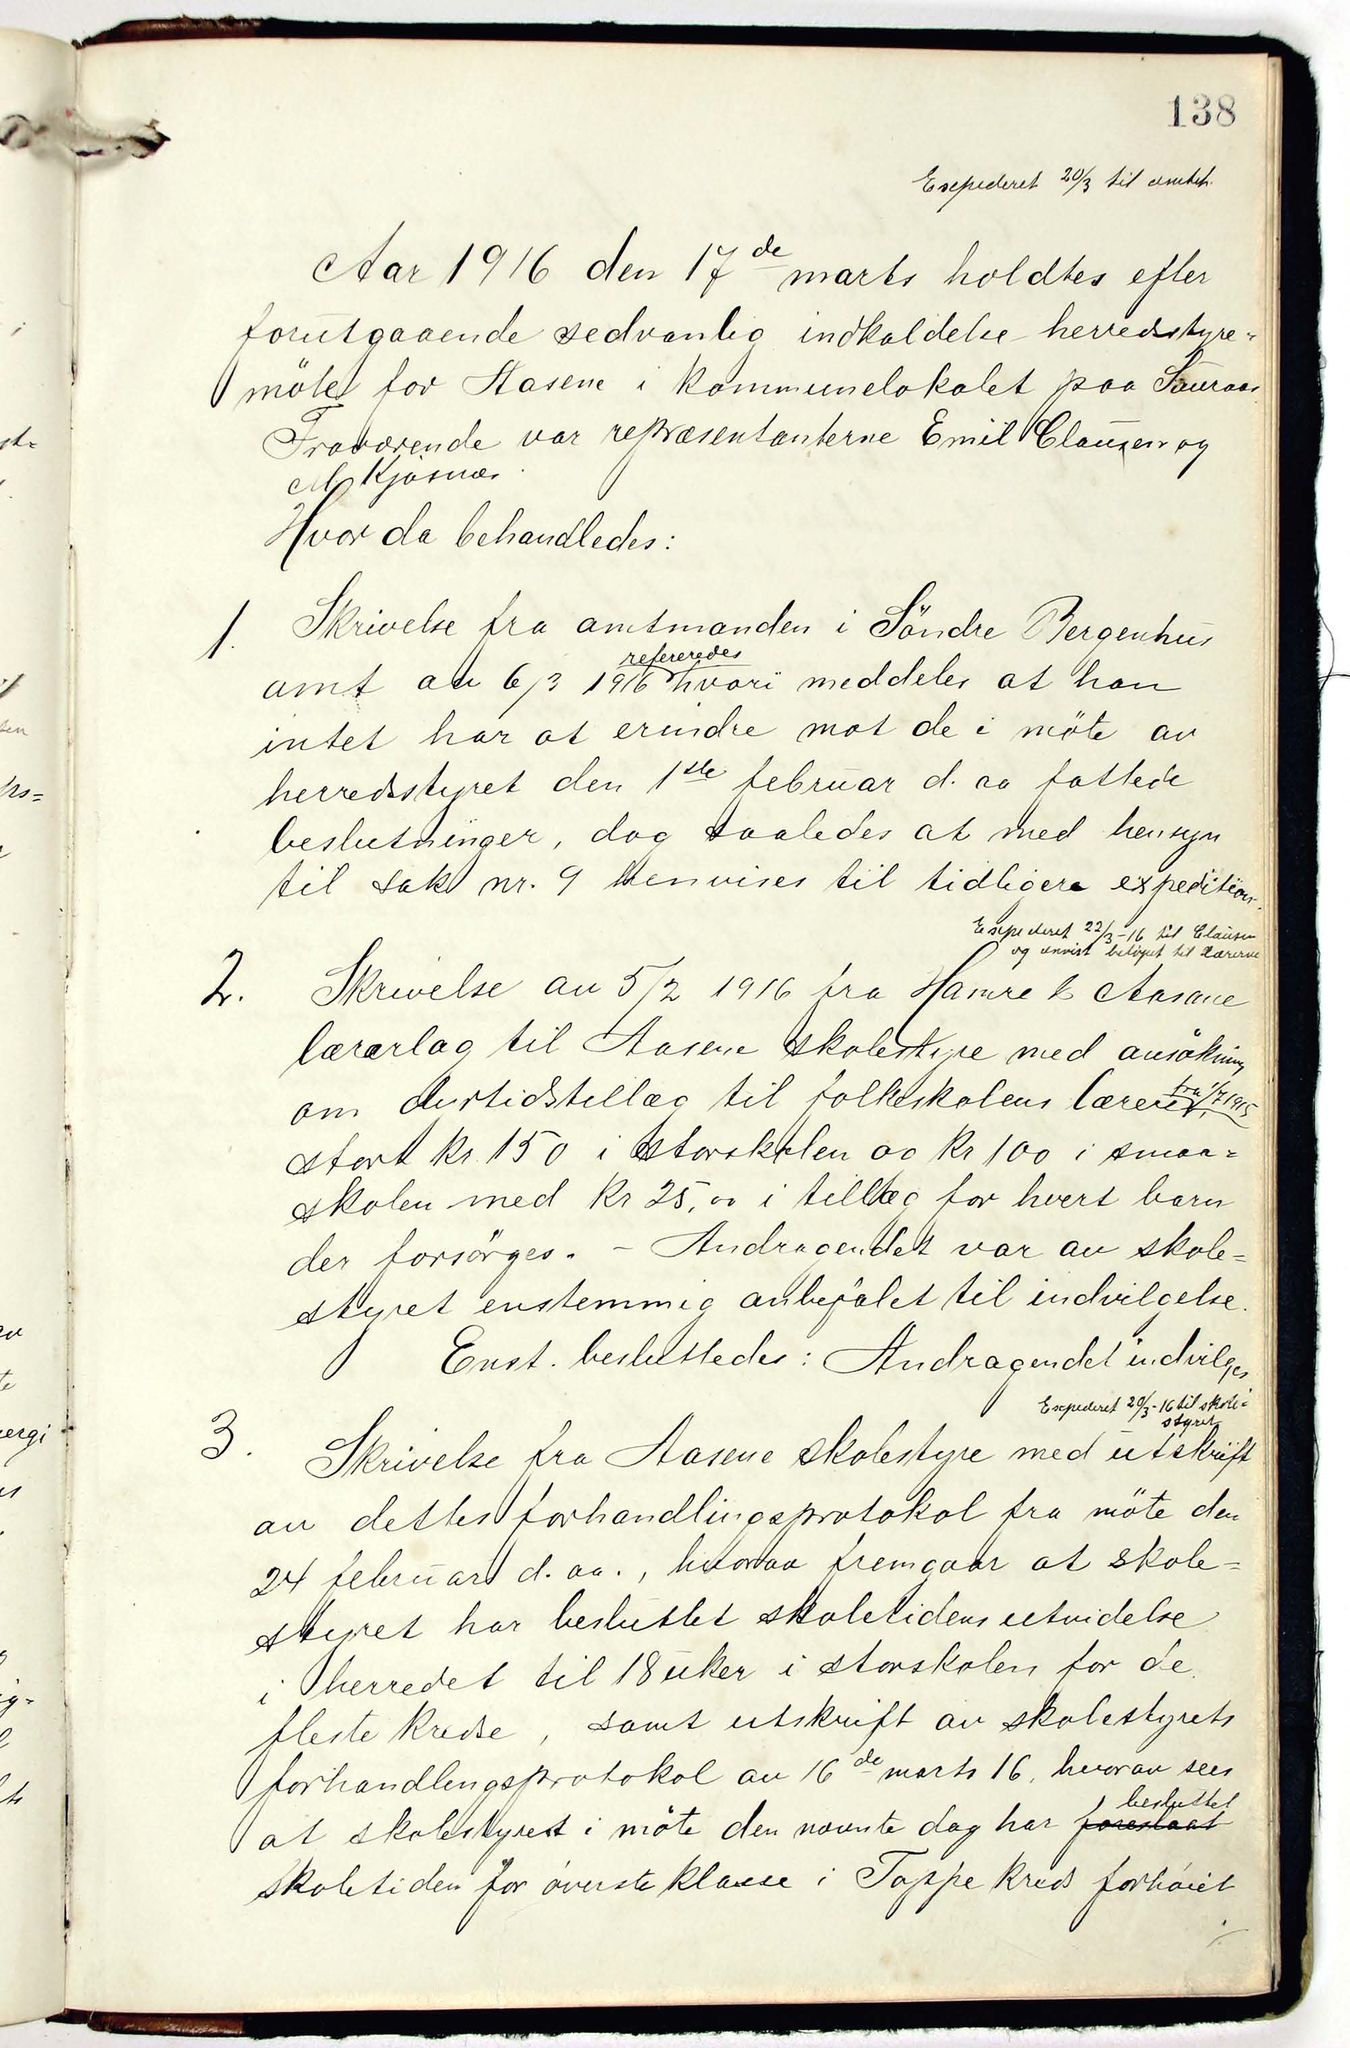 138
Expederet 20/3 til amtet.
Aar 1916 den 17de marts holdtes efter
forutgaaende sedvanlig indkaldelse herredsstyre-
möte for Aasene i kommunelokalet paa Sauraas
Fraværende var repræsentanterne Emil Clausen og
M Kjøsnæs
Hvor da behandledes:
1. Skrivelse fra amtmanden i Söndre Bergenhus
refereredes
amt av 6/3 1916 hvori meddeles at han
intet har at erindre mot de i möte av
herredsstyret den 1ste februar d. aa fattede
beslutninger, dog saaledes at med hensyn
til sak nr. 9 henvises til tidligere expedition.
Expederet 22/3-16 til Clausen
og anvist belöpet til lærerne
2. Skrivelse av 5/2 1916 fra Hamre & Aasane
lærarlag til Aasene skolestyre med ansökning
om dyrtidstillæg til folkeskolens lærere, fra 1/7 1915
stort kr 150 i storskolen og kr 100 i smaa-
skolen med kr 25,00 i tillæg for hvert barn
der forsörges. - Andragendet var av skole-
styret enstemmig anbefalet til indvilgelse.
Enst. besluttedes: Andragendet indvilges
Expederet 20/3-16 til skole-
styret
3. Skrivelse fra Aasene skolestyre med utskrift
av dettes forhandlingsprotokol fra möte den
24 februar d. aa., hvorav fremgaar at skole-
styret har besluttet skoletidens utvidelse
i herredet til 18 uker i storskolen for de
fleste kredse, samt utskrift av skolestyrets
forhandlingsprotokol av 16de marts 16, hvorav sees
besluttet
at skolestyret i möte den nævnte dag har foreslaat
skoletiden for øverste klasse i Toppe kreds forhöiet
./.